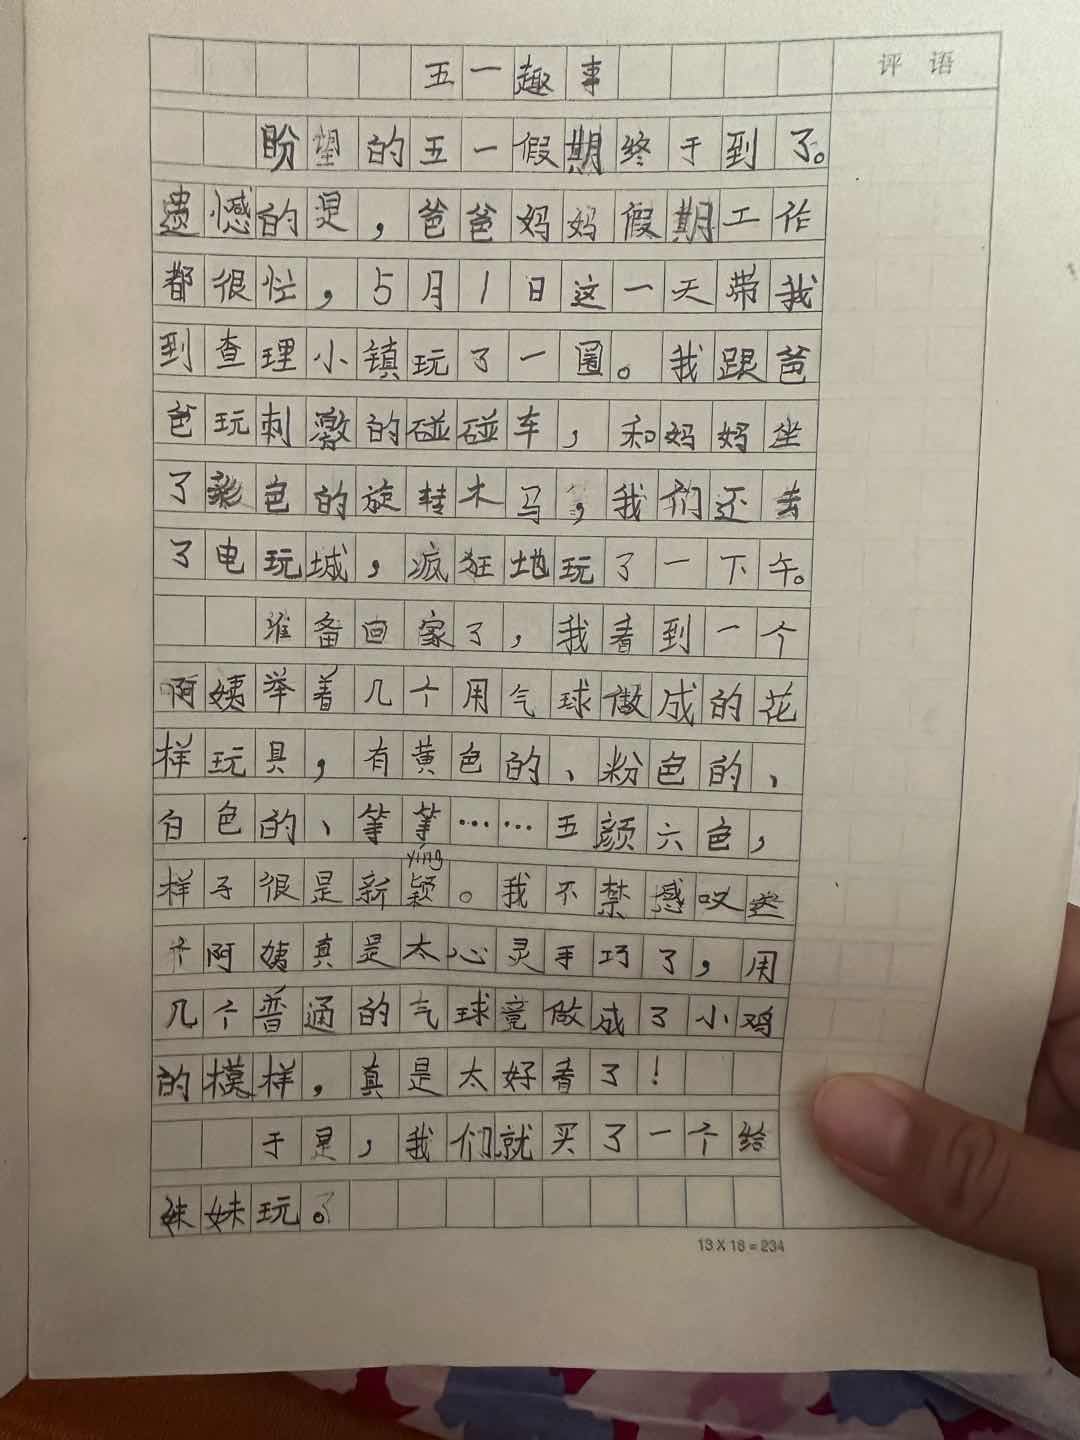 五一趣事
评语
盼望的五一假期终于到了。
遗憾的是，爸爸妈妈假期工作
都很忙，5月1日这一天带我
到查理小镇玩了一圈。我跟爸
爸玩刺激的碰碰车，和妈妈坐
了彩色的旋转木马，我们还去
了电玩城，疯狂地玩了一下午。
准备回家了，我看到一个
阿姨举着几个用气球做成的花
样玩具，有黄色的、粉色的、
白色的、等等……五颜六色，
yǐng
样子很是新颖。我不禁感叹这
个阿姨真是太心灵手巧了，用
几个普通的气球竟做成了小鸡
的模样，真是太好看了！
于是，我们就买了一个给
妹妹玩。
13×18=234